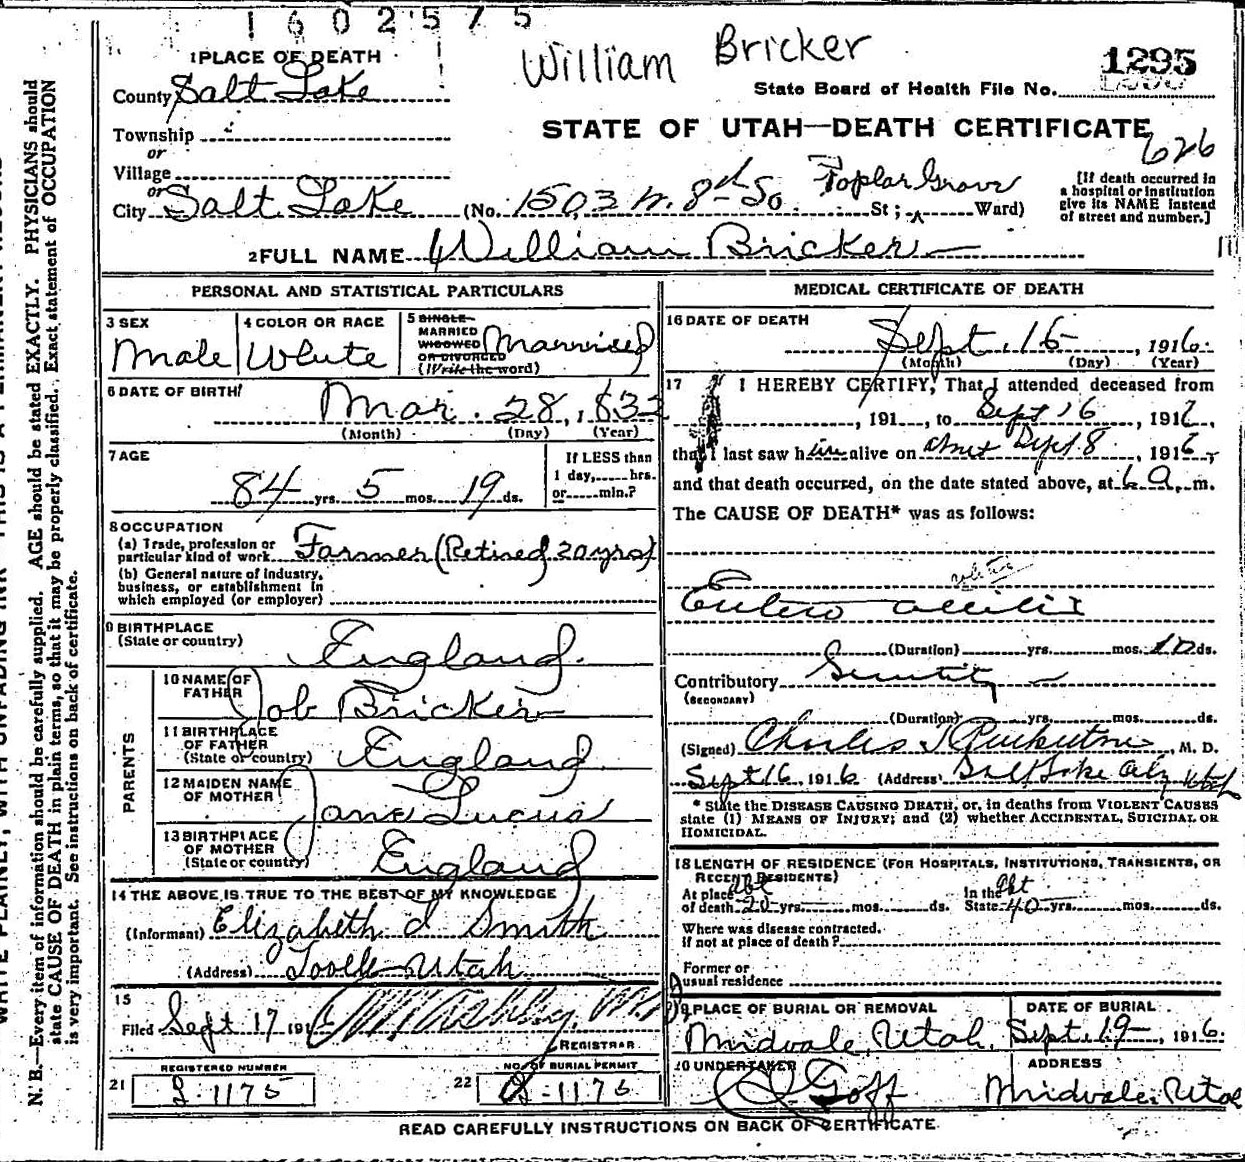 1602575
William Bricker
1295
1 PLACE OF DEATH
County Salt Lake
State Board of Health File No.
Township
STATE OF UTAH—DEATH CERTIFICATE
or
626
Village
or
City Salt Lake (No. 1503 W. 8th So. Poplar Grove St; Ward)
[If death occurred in
a hospital or institution
give its NAME instead
of street and number.]
2 FULL NAME William Bricker
PERSONAL AND STATISTICAL PARTICULARS
3 SEX
Male
4 COLOR OR RACE
White
5 SINGLE
MARRIED
WIDOWED
OR DIVORCED
(Write the word)
Married
6 DATE OF BIRTH
Mar. 28, 1832
(Month) (Day) (Year)
7 AGE
84 yrs. 5 mos. 19 ds.
If LESS than
1 day, hrs.
or min.?
8 OCCUPATION
(a) Trade, profession or
particular kind of work Farmer (Retired 20 yrs)
(b) General nature of industry,
business, or establishment in
which employed (or employer)
9 BIRTHPLACE
(State or country)
England.
PARENTS
10 NAME OF
FATHER
Job Bricker
11 BIRTHPLACE
OF FATHER
(State or country)
England.
12 MAIDEN NAME
OF MOTHER
Jane Lucas
13 BIRTHPLACE
OF MOTHER
(State or country)
England
14 THE ABOVE IS TRUE TO THE BEST OF MY KNOWLEDGE
(Informant) Elizabeth d Smith
(Address) Tooele Utah
15
Filed Sept 17 191
REGISTRAR
REGISTERED NUMBER
21 1175
NO. OF BURIAL PERMIT
22 1175
MEDICAL CERTIFICATE OF DEATH
16 DATE OF DEATH
Sept. 16, 1916.
(Month) (Day) (Year)
17 I HEREBY CERTIFY, That I attended deceased from
, 191 , to Sept 16 1916,
that I last saw him alive on about Sept. 8, 1916,
and that death occurred, on the date stated above, at 6 a. m.
The CAUSE OF DEATH* was as follows:
Entero colitis
(Duration) yrs. mos. 10 ds.
Contributory Senility
(SECONDARY)
(Duration) yrs. mos. ds.
(Signed) Charles , M. D.
Sept 16, 1916 (Address) Salt Lake City Utah
* State the DISEASE CAUSING DEATH, or, in deaths from VIOLENT CAUSES
state (1) MEANS OF INJURY; and (2) whether ACCIDENTAL, SUICIDAL OR
HOMICIDAL.
18 LENGTH OF RESIDENCE (FOR HOSPITALS, INSTITUTIONS, TRANSIENTS, OR
RECENT RESIDENTS)
At place abt In the abt
of death 20 yrs. mos. ds. State 40 yrs. mos. ds.
Where was disease contracted.
if not at place of death?
Former or
usual residence
19 PLACE OF BURIAL OR REMOVAL
Midvale, Utah.
DATE OF BURIAL
Sept. 19, 1916.
20 UNDERTAKER
Goff
ADDRESS
Midvale, Utah
READ CAREFULLY INSTRUCTIONS ON BACK OF CERTIFICATE
N. B.—Every item of information should be carefully supplied. AGE should be stated EXACTLY. PHYSICIANS should
state CAUSE OF DEATH in plain terms, so that it may be properly classified. Exact statement of OCCUPATION
is very important. See instructions on back of certificate.